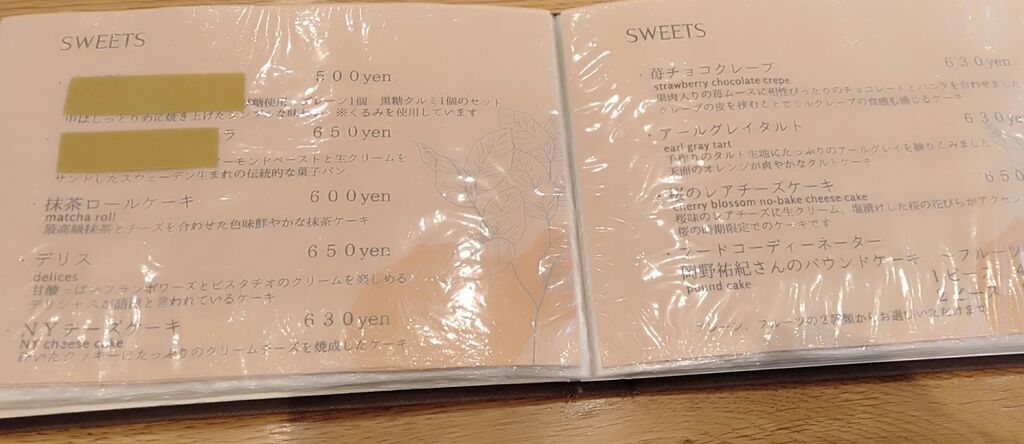 SWEETS
500yen
糖使用 プレーン1個 黒糖クルミ1個のセット
中はしっとりめに焼き上げたシンプルな味わい ※くるみを使用しています
ラ 650yen
アーモンドペーストと生クリームを
サンドしたスウェーデン生まれの伝統的な菓子パン
抹茶ロールケーキ 600yen
matcha roll
最高級抹茶とチーズを合わせた色味鮮やかな抹茶ケーキ
デリス 650yen
delices
甘酸っぱいフランボワーズとピスタチオのクリームを楽しめる
デリシャスが語源と言われているケーキ
NYチーズケーキ 630yen
NY cheese cake
砕いたクッキーにたっぷりのクリームチーズを焼成したケーキ
SWEETS
苺チョコクレープ 630yen
strawberry chocolate crepe
果肉入りの苺ムースに相性ぴったりのチョコレートとバニラを合わせました
クレープの皮を挟むことでミルクレープの食感も感じるケーキ
アールグレイタルト 630
earl gray tart
手作りのタルト生地にたっぷりのアールグレイを練りこみました
天面のオレンジが爽やかなタルトケーキ
桜のレアチーズケーキ 650
cherry blossom no-bake cheese cake
桜味のレアチーズに生クリーム、塩漬けした桜の花びらがアクセン
桜の時期限定でのケーキです
フードコーディネーター
岡野祐紀さんのパウンドケーキ ～フルーツ
pound cake 1ピース 4
2ピース
プレーン、フルーツの2種類からお選びいただけます